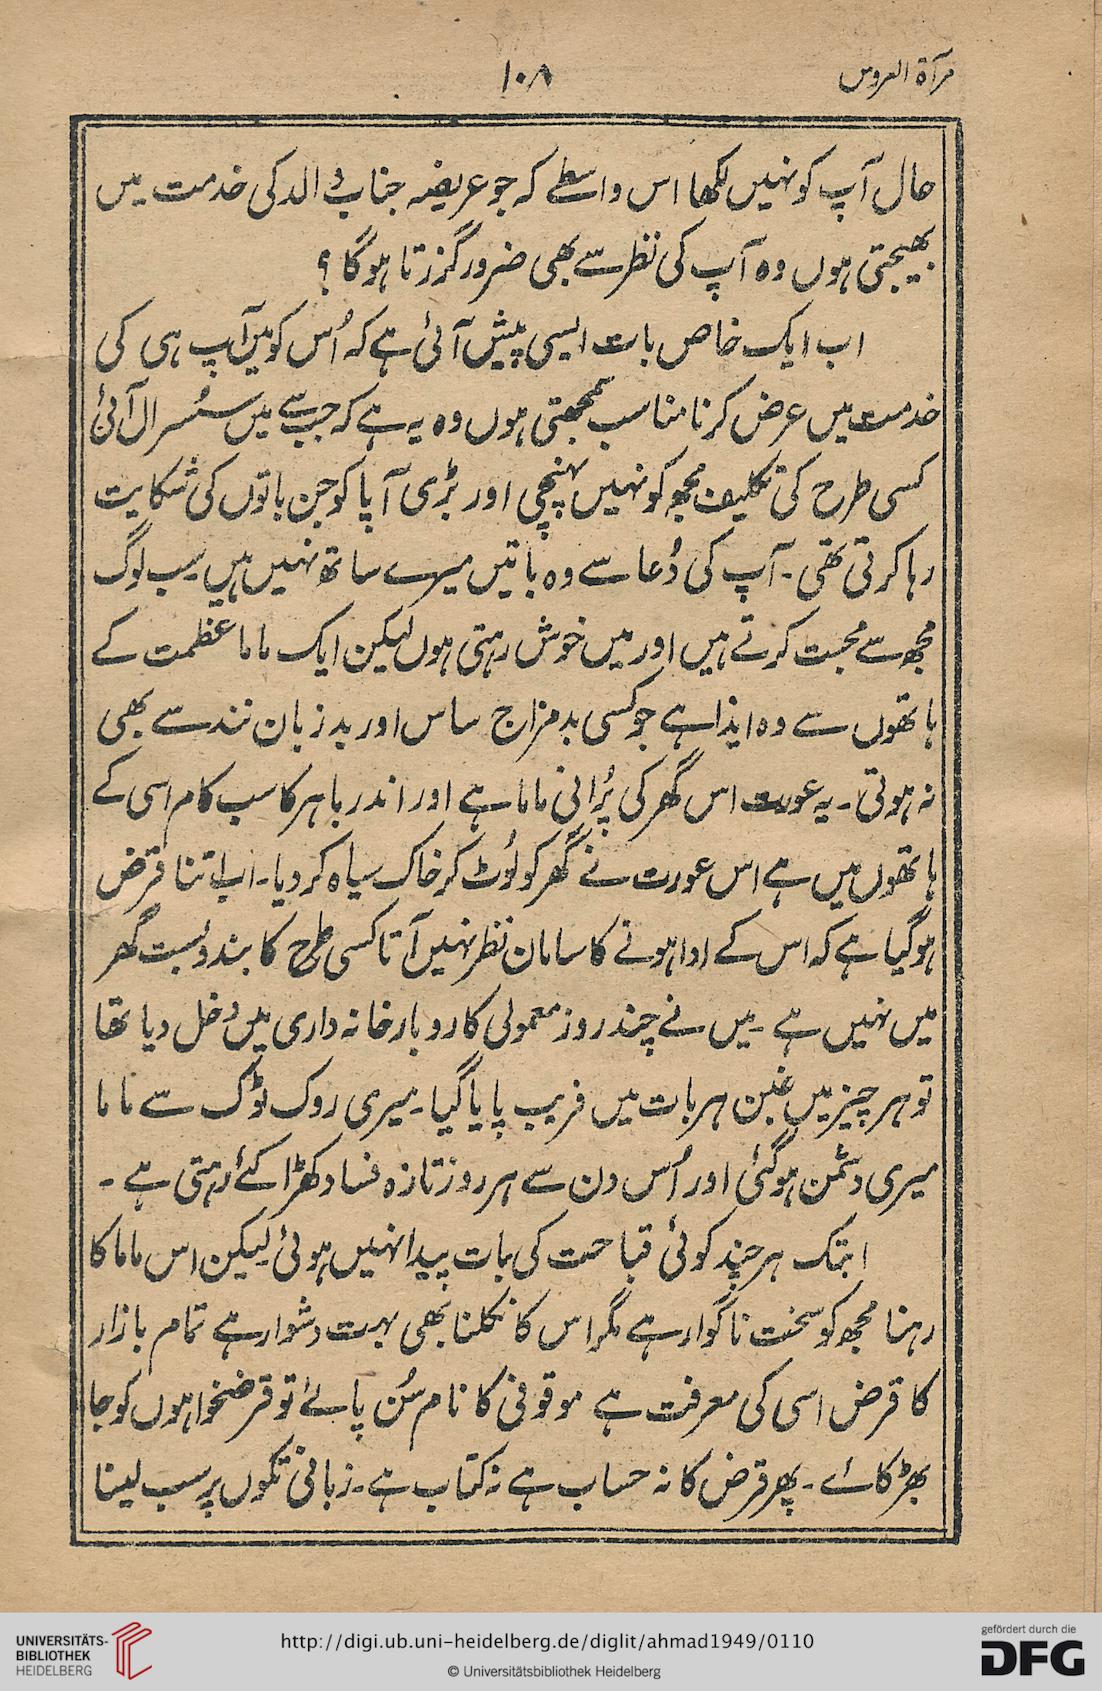 مرآة العروس
۱۰۸
حال آپ کو نہیں لکھا اس واسطے کہ جو عریضہ جناب والد کی خدمت میں
بھیجتی ہوں وہ آپ کی نظر سے بھی ضرور گزرتا ہوگا ؟
اب ایک خاص بات ایسی پیش آئی ہے کہ اُس کو میں آپ ہی کی
خدمت میں عرض کرنا مناسب سمجھتی ہوں وہ یہ ہے کہ جب سے میں سُسرال آئی
کسی طرح کی تکلیف مجھ کو نہیں پہنچی اور بڑی آپا کو جن باتوں کی شکایت
رہا کرتی تھی ۔ آپ کی دُعا سے وہ باتیں میرے ساتھ نہیں ہیں سب لوگ
مجھ سے محبت کرتے ہیں اور میں خوش رہتی ہوں لیکن ایک ماما عظمت کے
ہاتھوں سے وہ ایذا ہے جو کسی بد مزاج ساس اور بد زبان نند سے بھی
نہ ہوتی ۔ یہ عورت اس گھر کی پُرانی ماما ہے اور اندر باہر کا سب کام اسی کے
ہاتھوں میں ہے اس عورت نے گھر کو لُوٹ کر خاک سیاہ کر دیا ۔ اب اتنا قرض
ہو گیا ہے کہ اس کے ادا ہونے کا سامان نظر نہیں آتا کسی طرح کا بندوبست گھر
میں نہیں ہے ۔ میں نے چند روز معمولی کاروبار خانہ داری میں دخل دیا تھا
تو ہر چیز میں غبن ہر بات میں فریب پایا گیا ۔ میری روک ٹوک سے ماما
میری دشمن ہو گئی اور اُس دن سے ہر روز تازہ فساد کھڑا کئے رہتی ہے ۔
ابتک ہر چند کوئی قباحت کی بات پیدا نہیں ہوئی لیکن اس ماما کا
رہنا مجھ کو سخت ناگوار ہے مگر اس کا نکلنا بھی بہت دشوار ہے تمام بازار
کا قرض اسی کی معرفت ہے موقوفی کا نام سُن پائے تو قرضخواہوں کو جا
بھڑکائے ۔ پھر قرض کا نہ حساب ہے نہ کتاب ہے ۔ زبانی تکوں پر سب لینا
UNIVERSITÄTS-
BIBLIOTHEK
HEIDELBERG
http://digi.ub.uni-heidelberg.de/diglit/ahmad1949/0110
© Universitätsbibliothek Heidelberg
gefördert durch die
DFG